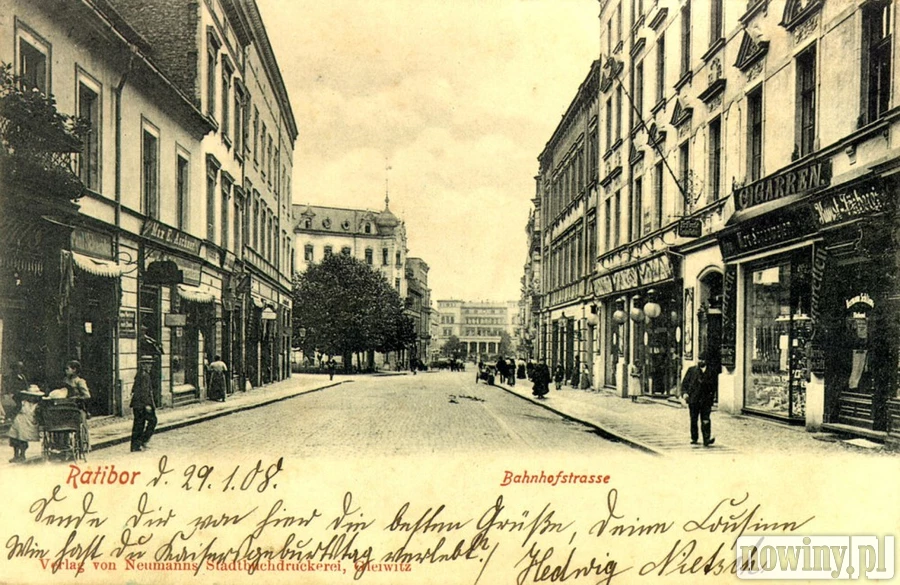 Max L. Aschner
CIGARREN
Ratibor d. 29.1.08.
Bahnhofstrasse
Sende Dir von hier die besten Grüße, Deine Cousine
Wie hast Du Kaisersgeburtstag verlebt? Hedwig Nietsch
Verlag von Neumanns Stadtbuchdruckerei, Gleiwitz
nowiny.pl